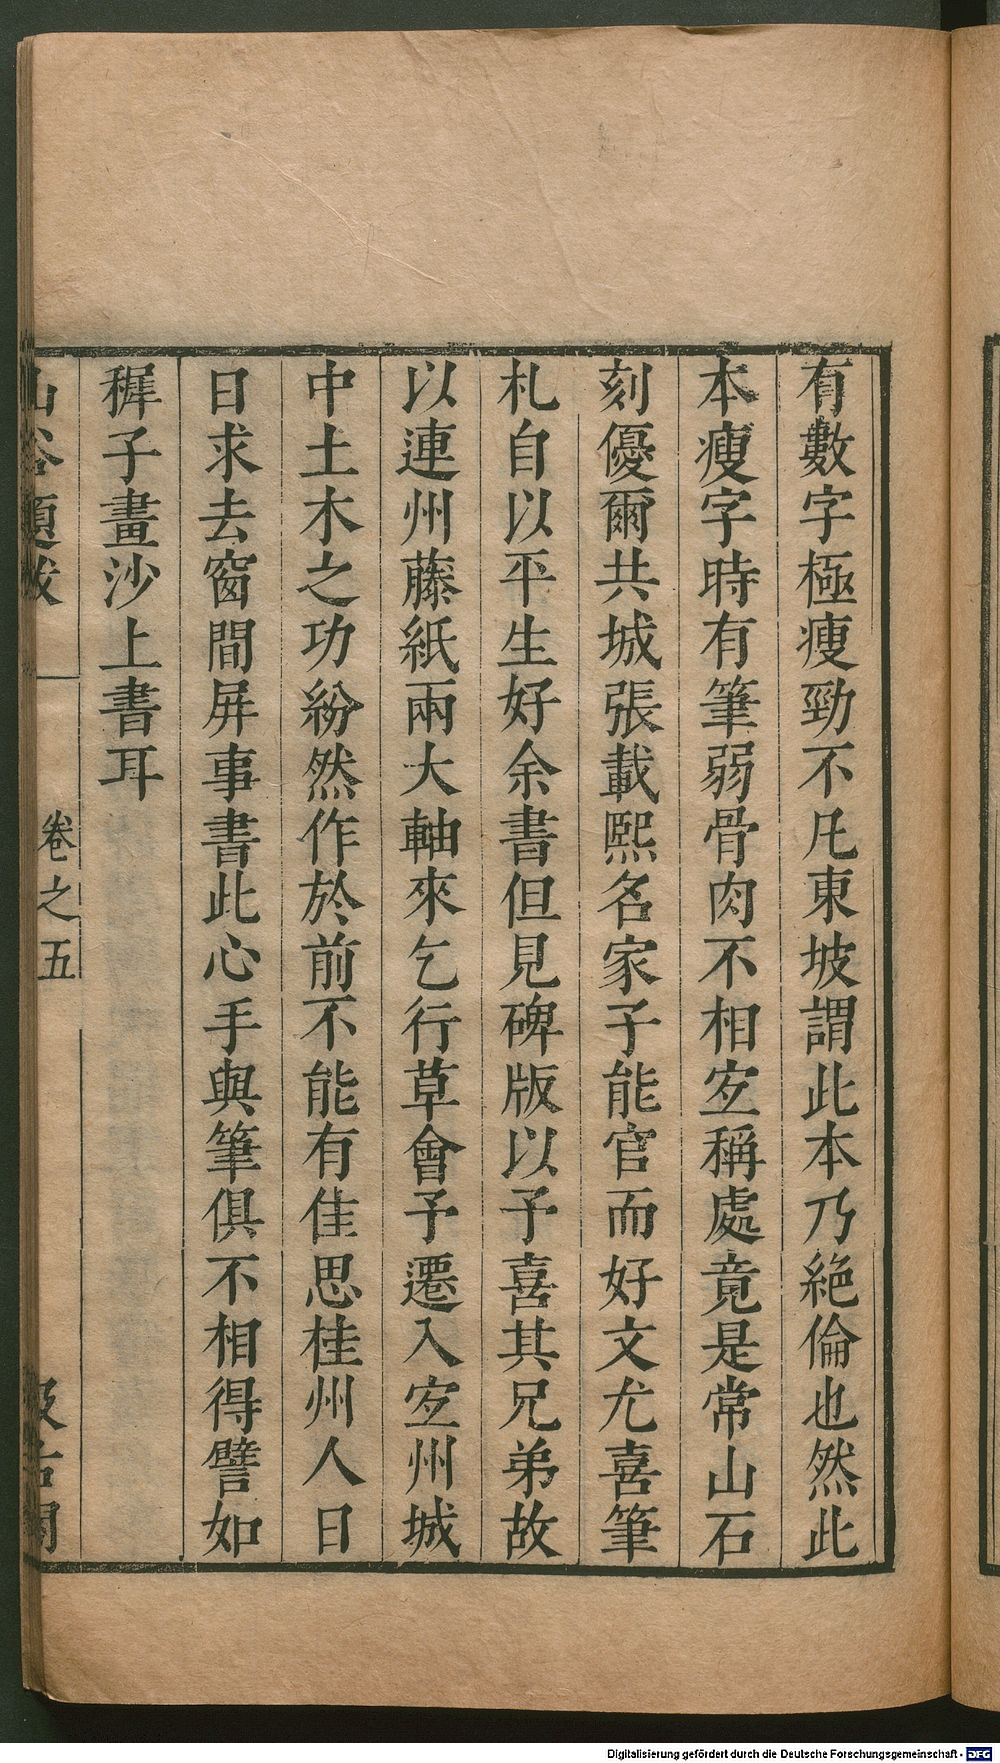 有數字極瘦勁不凡東坡謂此本乃絕倫也然此
本瘦字時有筆弱骨肉不相宜稱處竟是常山石
刻優爾共城張載熙名家子能官而好文尤喜筆
札自以平生好余書但見碑版以予喜其兄弟故
以連州藤紙兩大軸來乞行草會予遷入宜州城
中土木之功紛然作於前不能有佳思桂州人日
日求去窗間屏事書此心手與筆俱不相得譬如
穉子畫沙上書耳
山谷題跋
卷之五
汲古閣
Digitalisierung gefördert durch die Deutsche Forschungsgemeinschaft - DFG